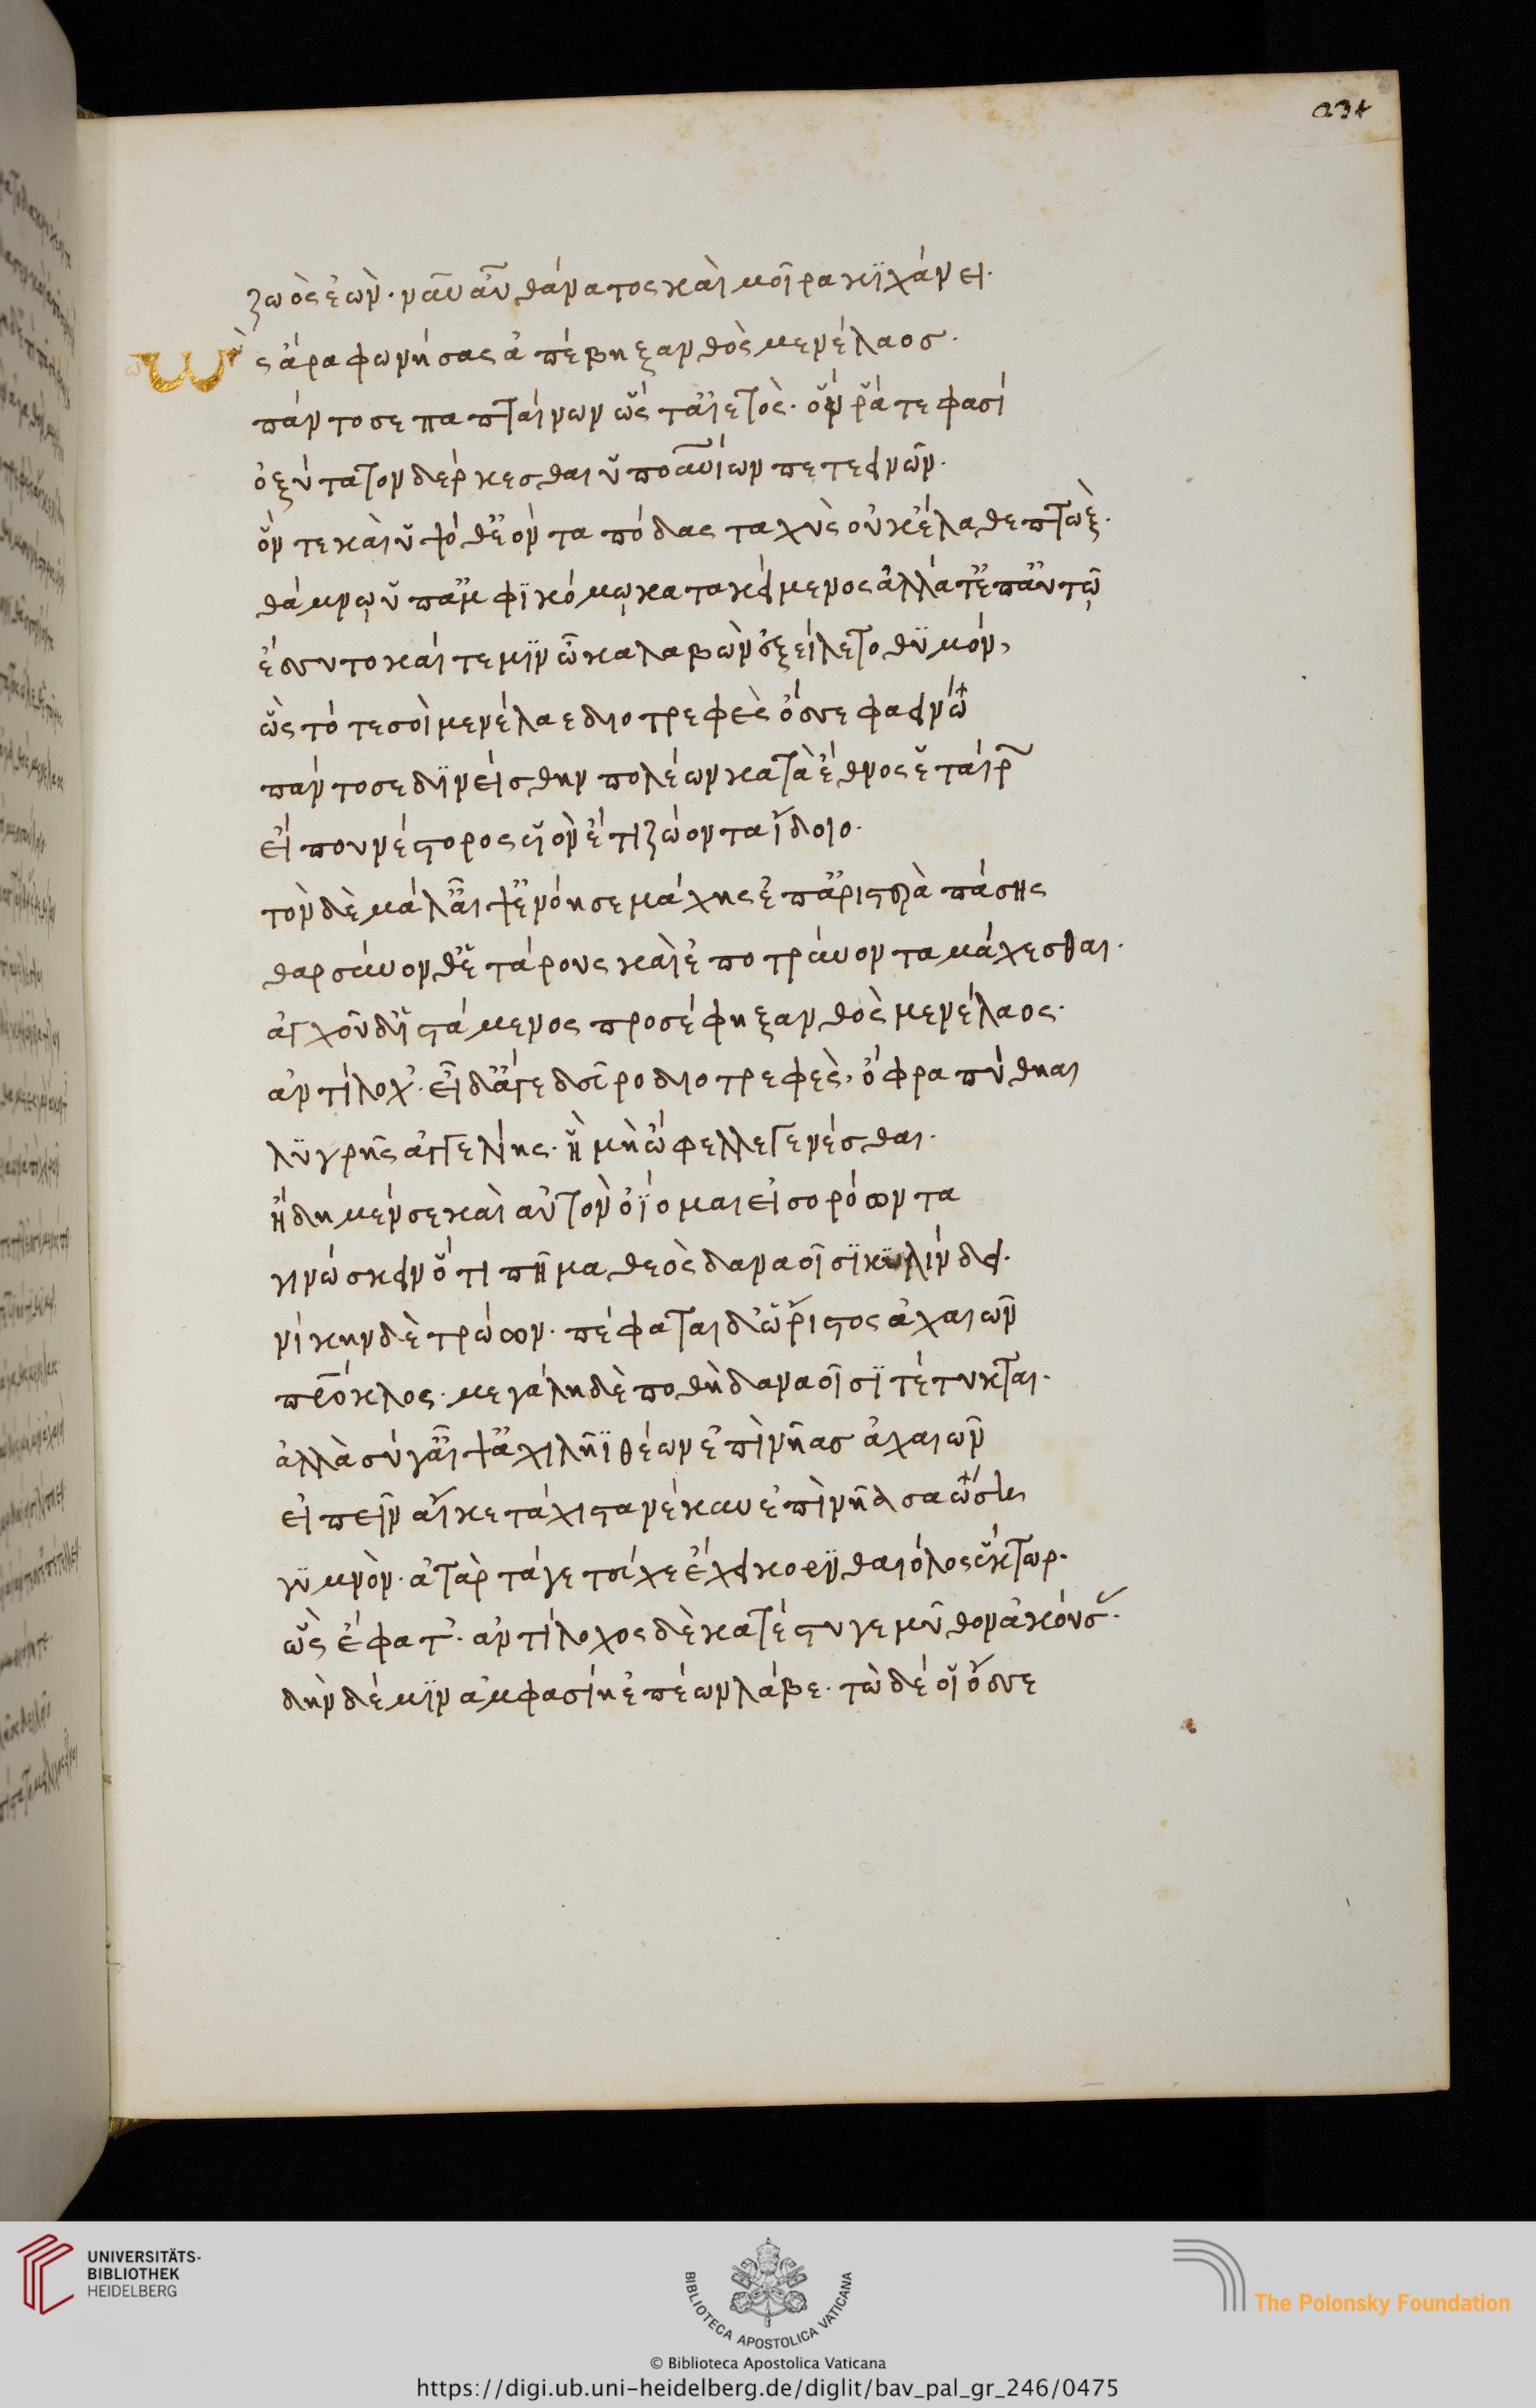 231
ζωὸς ἐών· νῦν αὖ θάνατος καὶ μοῖρα κιχάνει·
ὣς ἄρα φωνήσας ἀπέβη ξανθὸς μενέλαος·
πάντοσε παπταίνων ὥς τ' αἰετός· ὅν ῥά τε φασί
ὀξύτατον δέρκεσθαι ὑπουρανίων πετεεινῶν·
ὅν τε καὶ ὑψόθ' ἐόντα πόδας ταχὺς οὐκ ἔλαθε πτώξ·
θάμνῳ ὑπ' ἀμφικόμῳ κατακείμενος ἀλλά τ' ἐπ' αὐτῷ
ἔσσυτο καί τέ μιν ὦκα λαβὼν ἐξείλετο θυμόν,
ὣς τότε σοὶ μενέλαε διοτρεφὲς ὄσσε φαεινώ
πάντοσε δινείσθην πολέων κατὰ ἔθνος ἑταίρων
εἴ που νέστορος υἱὸν ἔτι ζώοντα ἴδοιο·
τὸν δὲ μάλ' αἶψ' ἐνόησε μάχης ἐπ' ἀριστερὰ πάσης
θαρσύνονθ' ἑτάρους καὶ ἐποτρύνοντα μάχεσθαι·
ἀγχοῦ δ' ἱστάμενος προσέφη ξανθὸς μενέλαος·
ἀντίλοχ'· εἰ δ' ἄγε δεῦρο διοτρεφὲς, ὄφρα πύθηαι
λυγρῆς ἀγγελίης· ἣ μὴ ὤφελλε γενέσθαι·
ἤδη μέν σε καὶ αὐτὸν ὀΐομαι εἰσορόωντα
γινώσκειν ὅτι πῆμα θεὸς δαναοῖσι κυλίνδει·
νίκη δὲ τρώων· πέφαται δ' ὤριστος ἀχαιῶν
πάτροκλος· μεγάλη δὲ ποθὴ δαναοῖσι τέτυκται·
ἀλλὰ σύ γ' αἶψ' ἀχιλῆϊ θέων ἐπὶ νῆας ἀχαιῶν
εἰπεῖν αἴ κε τάχιστα νέκυν ἐπὶ νῆα σαώσῃ
γυμνόν· ἀτὰρ τά γε τεύχε' ἔχει κορυθαιόλος ἕκτωρ·
ὣς ἔφατ'· ἀντίλοχος δὲ κατέστυγε μῦθον ἀκούσας·
δὴν δέ μιν ἀμφασίη ἐπέων λάβε· τὼ δέ οἱ ὄσσε
UNIVERSITÄTS-
BIBLIOTHEK
HEIDELBERG
BIBLIOTECA APOSTOLICA VATICANA
The Polonsky Foundation
© Biblioteca Apostolica Vaticana
https://digi.ub.uni-heidelberg.de/diglit/bav_pal_gr_246/0475